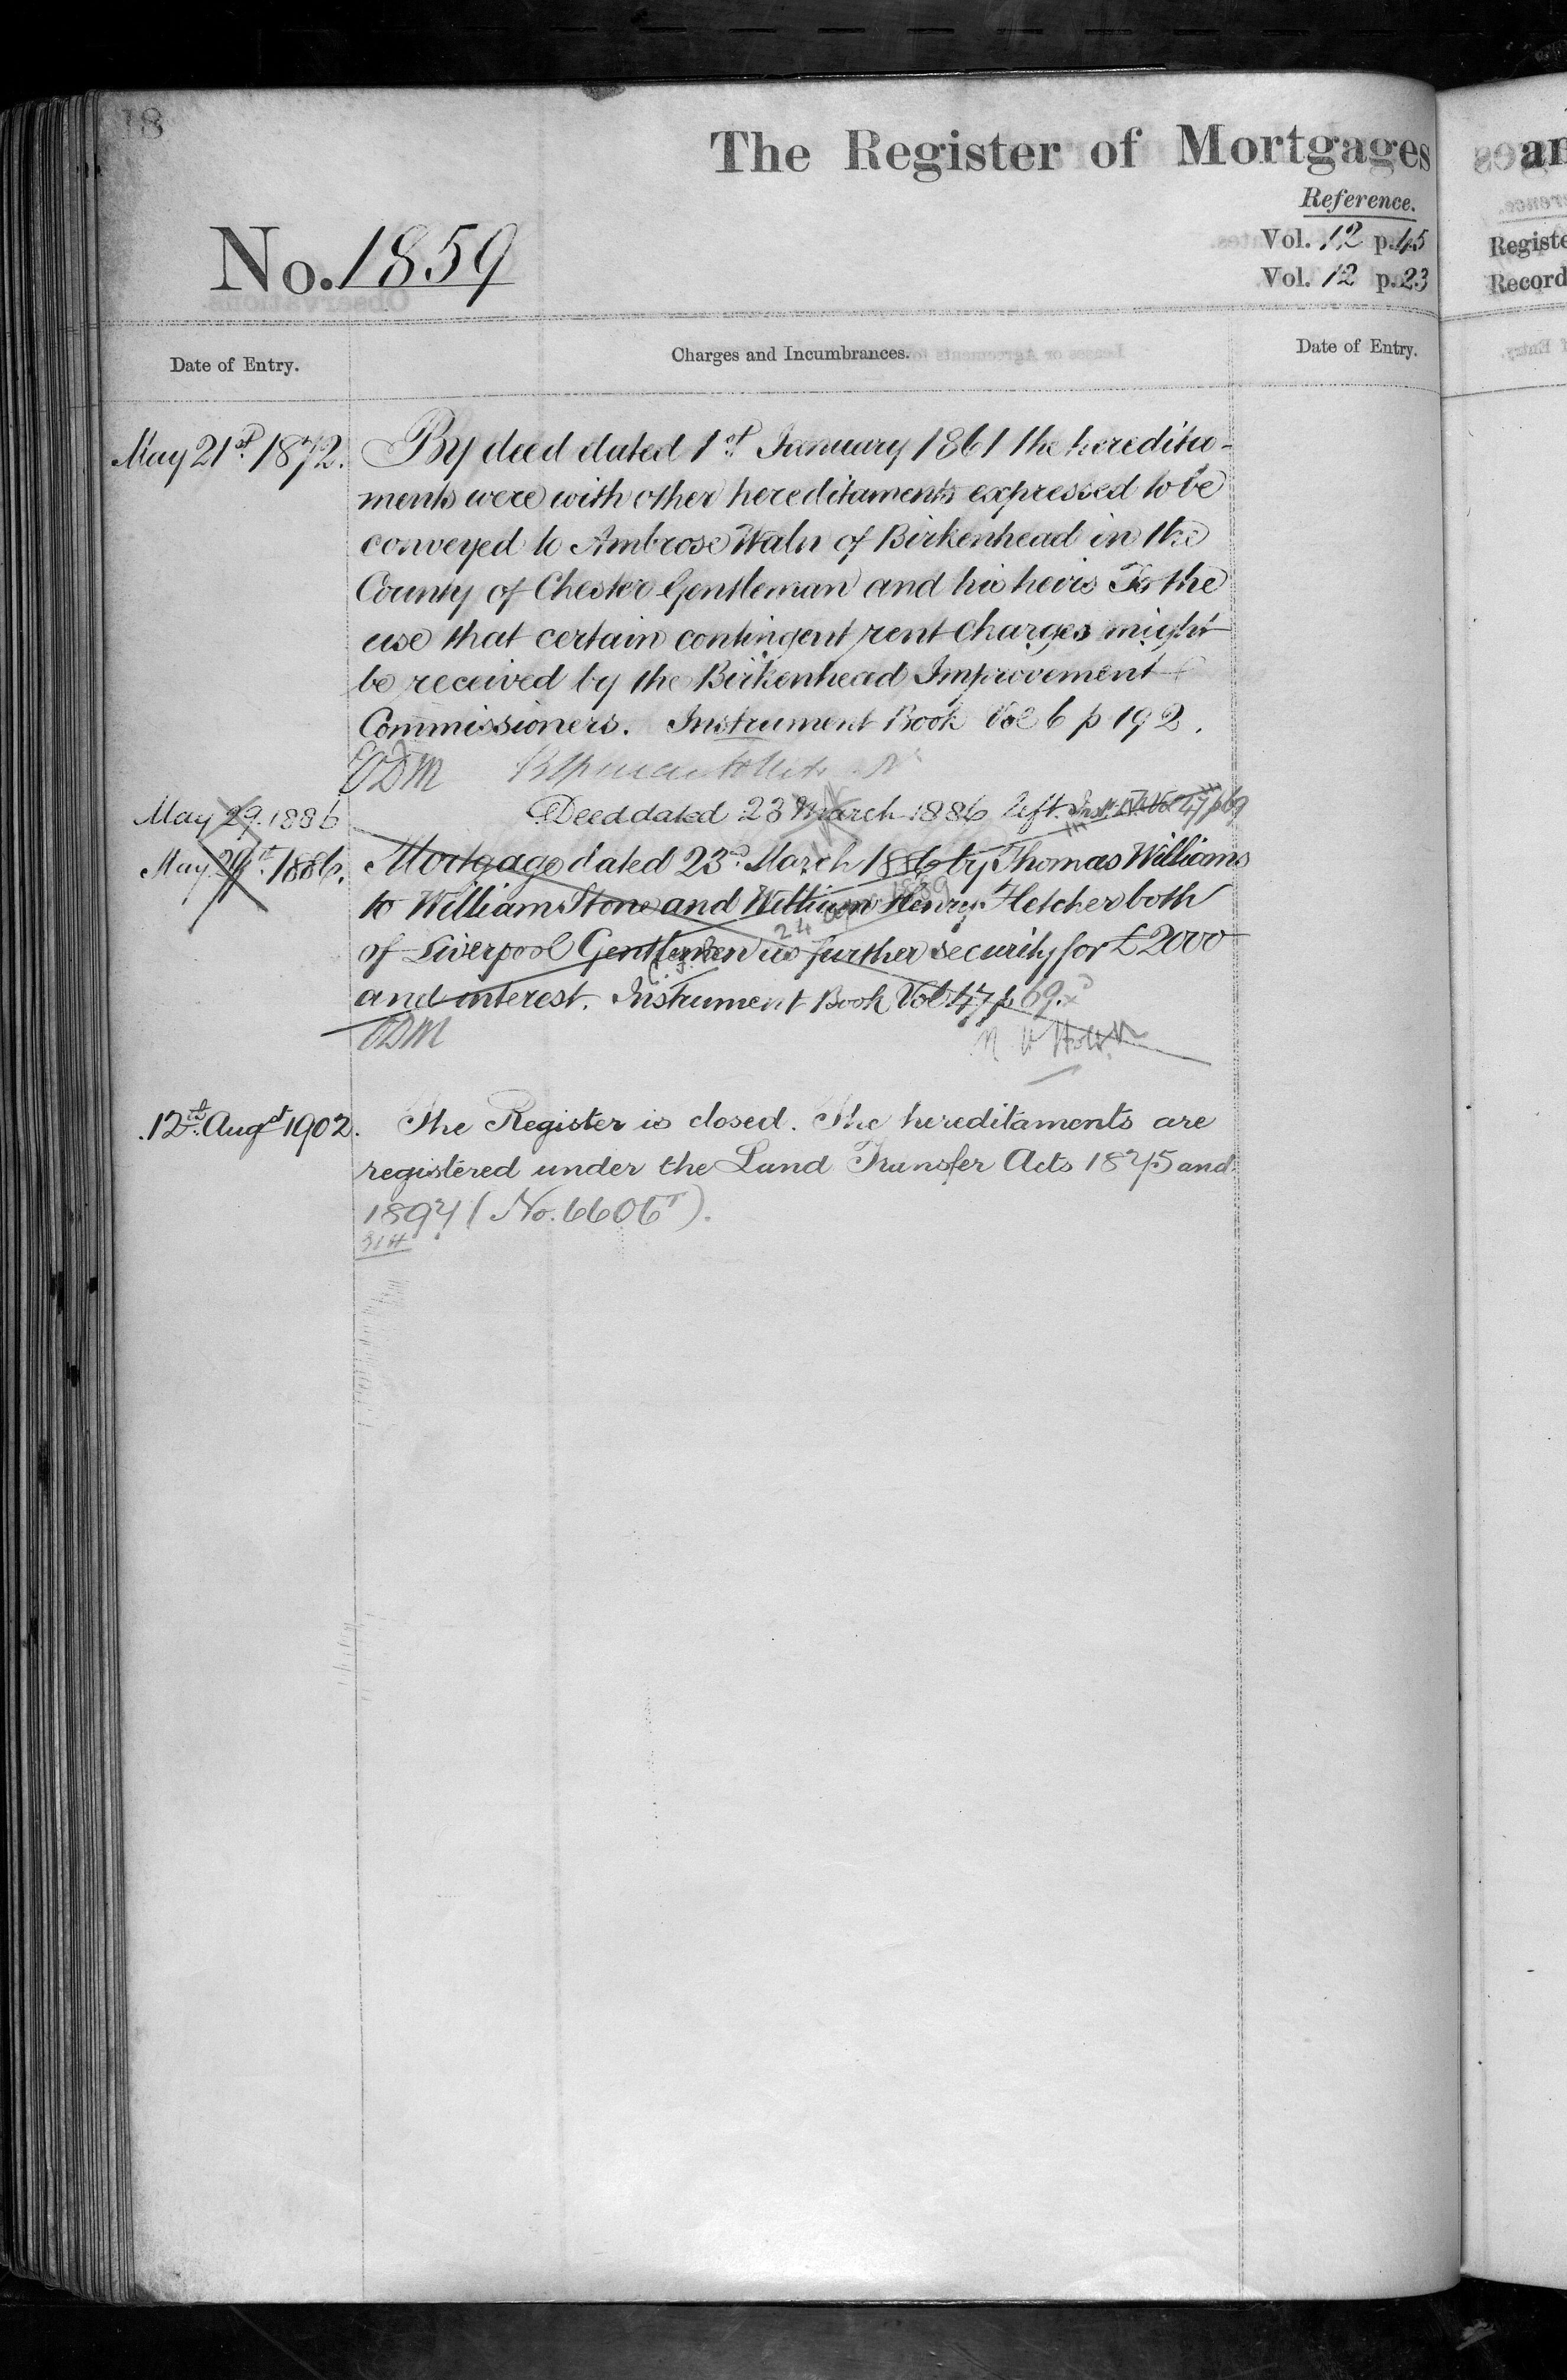 18
The Register of Mortgages
Reference.
No. 1859
Vol. 12 p. 45
Vol. 12 p. 23
Date of Entry.
Charges and Incumbrances.
Date of Entry.
May 21st 1872. By deed dated 1st January 1861 the heredita-
ments were with other hereditaments expressed to be
conveyed to Ambrose Waln of Birkenhead in the
County of Chester Gentleman and his heirs To the
use that certain contingent rent charges might
be received by the Birkenhead Improvement
Commissioners. Instrument Book Vol 6 p 192.
May 29. 1886 Deed dated 23 March 1886 left. Inst. Vol 47 p 69
May 29th 1886. Mortgage dated 23rd March 1886 by Thomas Williams
to William Stone and William Henry Fletcher both
of Liverpool Gentlemen as further security for £2000
and interest. Instrument Book Vol 47 p 69.
12th Augst 1902. The Register is closed. The hereditaments are
registered under the Land Transfer Acts 1875 and
1897 (No. 6606).
Registe
Record